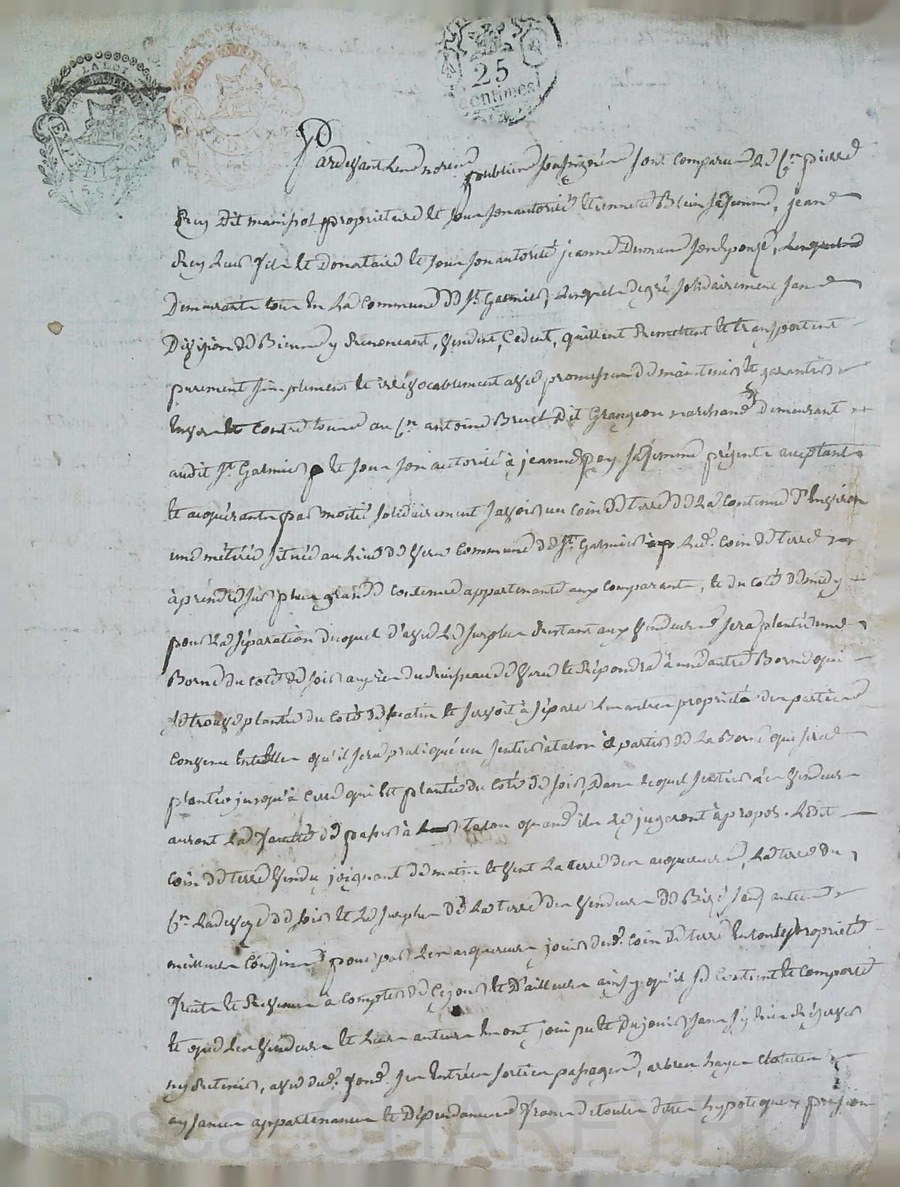 LA LOI
25
centimes
Pardevant les notaires publics soussignés sont comparus le Cn. pierre
Rey dit manissol propriétaire et sous son autorité Etiennette Blein sa femme, jean
Rey leur fils et donataire et sous son autorité jeanne sen Epouse,
Demeurants tous en la commune de St. Galmier, lesquels de gré solidairement sans
Division de Biens y Renoncant, Vendent, Cedent, quittent Remettent et transportent
purement simplement et irrévocablement avec promesse de maintenir et garantir
Envers et contre tous au Cn. antoine Bruel Dit Grangeon marchand Demeurant
audit St. Galmier et sous son autorité à jeanne Rey sa femme présents acceptants
et acquérants par moitié solidairement savoir un coin de terre de la contenue D'Environ
une métérée située au lieu de Commune de St. Galmier led. coin de terre
à prendre sur plus grande contenue appartenante aux comparants, et du coté de midy
pour la séparation duquel d'avec le surplus restant aux Vendeurs sera planté une
Borne du coté de soir au ruisseau de et Répondra à une autre Borne qui
se trouve plantée du coté de matin et servoit à séparer les autres propriétés des parties
convenu Entr'elles qu'il sera pratiqué un sentier à talon à partir de la Borne qui sera
plantée jusqu'à celle qui est plantée du coté de soir, Dans lequel sentier les Vendeurs
auront la faculté de passer à talon quand ils le jugeront à propos. Ledit
coin de terre Vendu joignant de matin et Vent la terre des acquéreurs, la terre du
Cn. de soir et le surplus de la terre des Vendeurs de Bize sauf autres
meilleurs confins pour par les acquereurs jouir dud. coin de terre En toute propriété
fruits et Revenus à compter de ce jour et D'ailleurs ainsy qu'il se contient et comporte
et que les Vendeurs et leurs auteurs En ont joui pu et Du jouir sans s'y rien Réserver
ny Retenir, avec dud. fond ses Entrées sorties passages, arbres hayes clotures
aysances appartenances et Dépendances franc de toutes dettes hypoteques pension
Pascal CHAREYRON